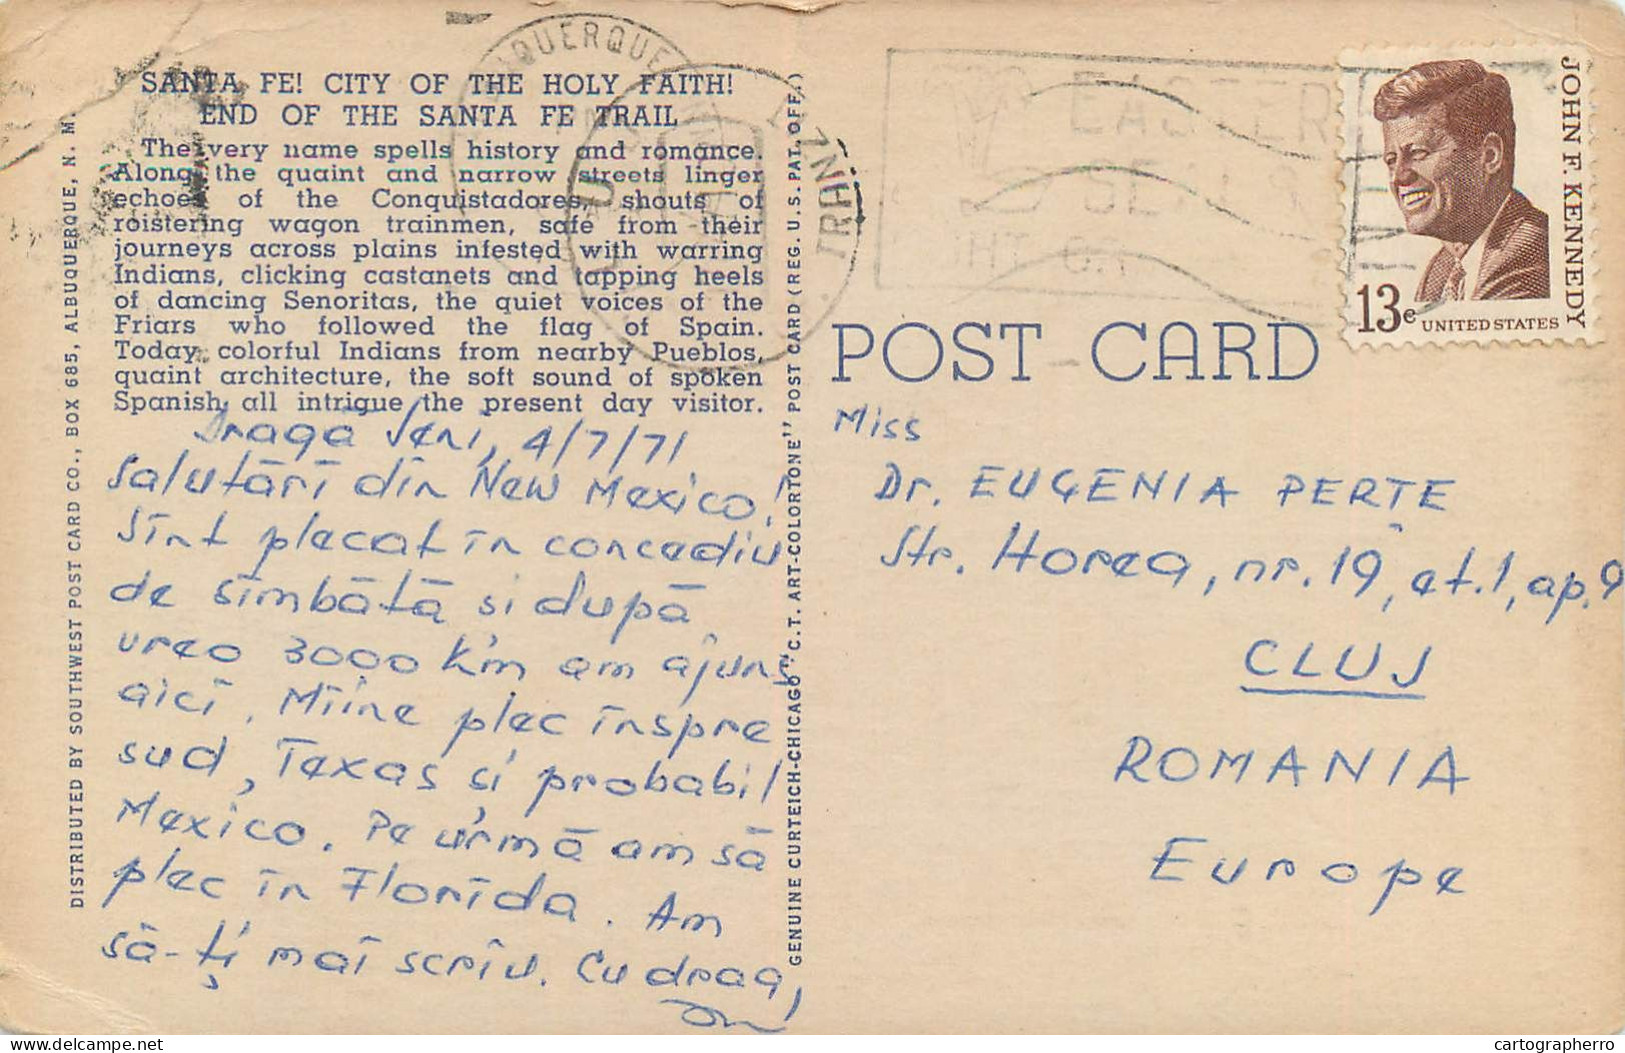 SANTA FE! CITY OF THE HOLY FAITH!
END OF THE SANTA FE TRAIL
The very name spells history and romance.
Along the quaint and narrow streets linger
echoes of the Conquistadores, shouts of
roistering wagon trainmen, safe from their
journeys across plains infested with warring
Indians, clicking castanets and tapping heels
of dancing Senoritas, the quiet voices of the
Friars who followed the flag of Spain.
Today, colorful Indians from nearby Pueblos,
quaint architecture, the soft sound of spoken
Spanish, all intrigue the present day visitor.
Dragă Jeni, 4/7/71
Salutări din New Mexico!
Sînt plecat în concediu
de sîmbătă si după
vreo 3000 km am ajuns
aici. Mîine plec înspre
sud, Texas si probabil
Mexico. Pe urmă am să
plec în Florida. Am
să-ţi mai scriu. Cu drag,
DISTRIBUTED BY SOUTHWEST POST CARD CO., BOX 685, ALBUQUERQUE, N. M.
GENUINE CURTEICH-CHICAGO "C.T. ART-COLORTONE" POST CARD (REG. U.S. PAT. OFF.)
ALBUQUERQUE
TRANZIT
EASTER
SEAL
JOHN F. KENNEDY
13c UNITED STATES
POST CARD
Miss
Dr. EUGENIA PERTE
Str. Horea, nr. 19, et. 1, ap. 9
CLUJ
ROMANIA
Europe
delcampe.net
cartographerro